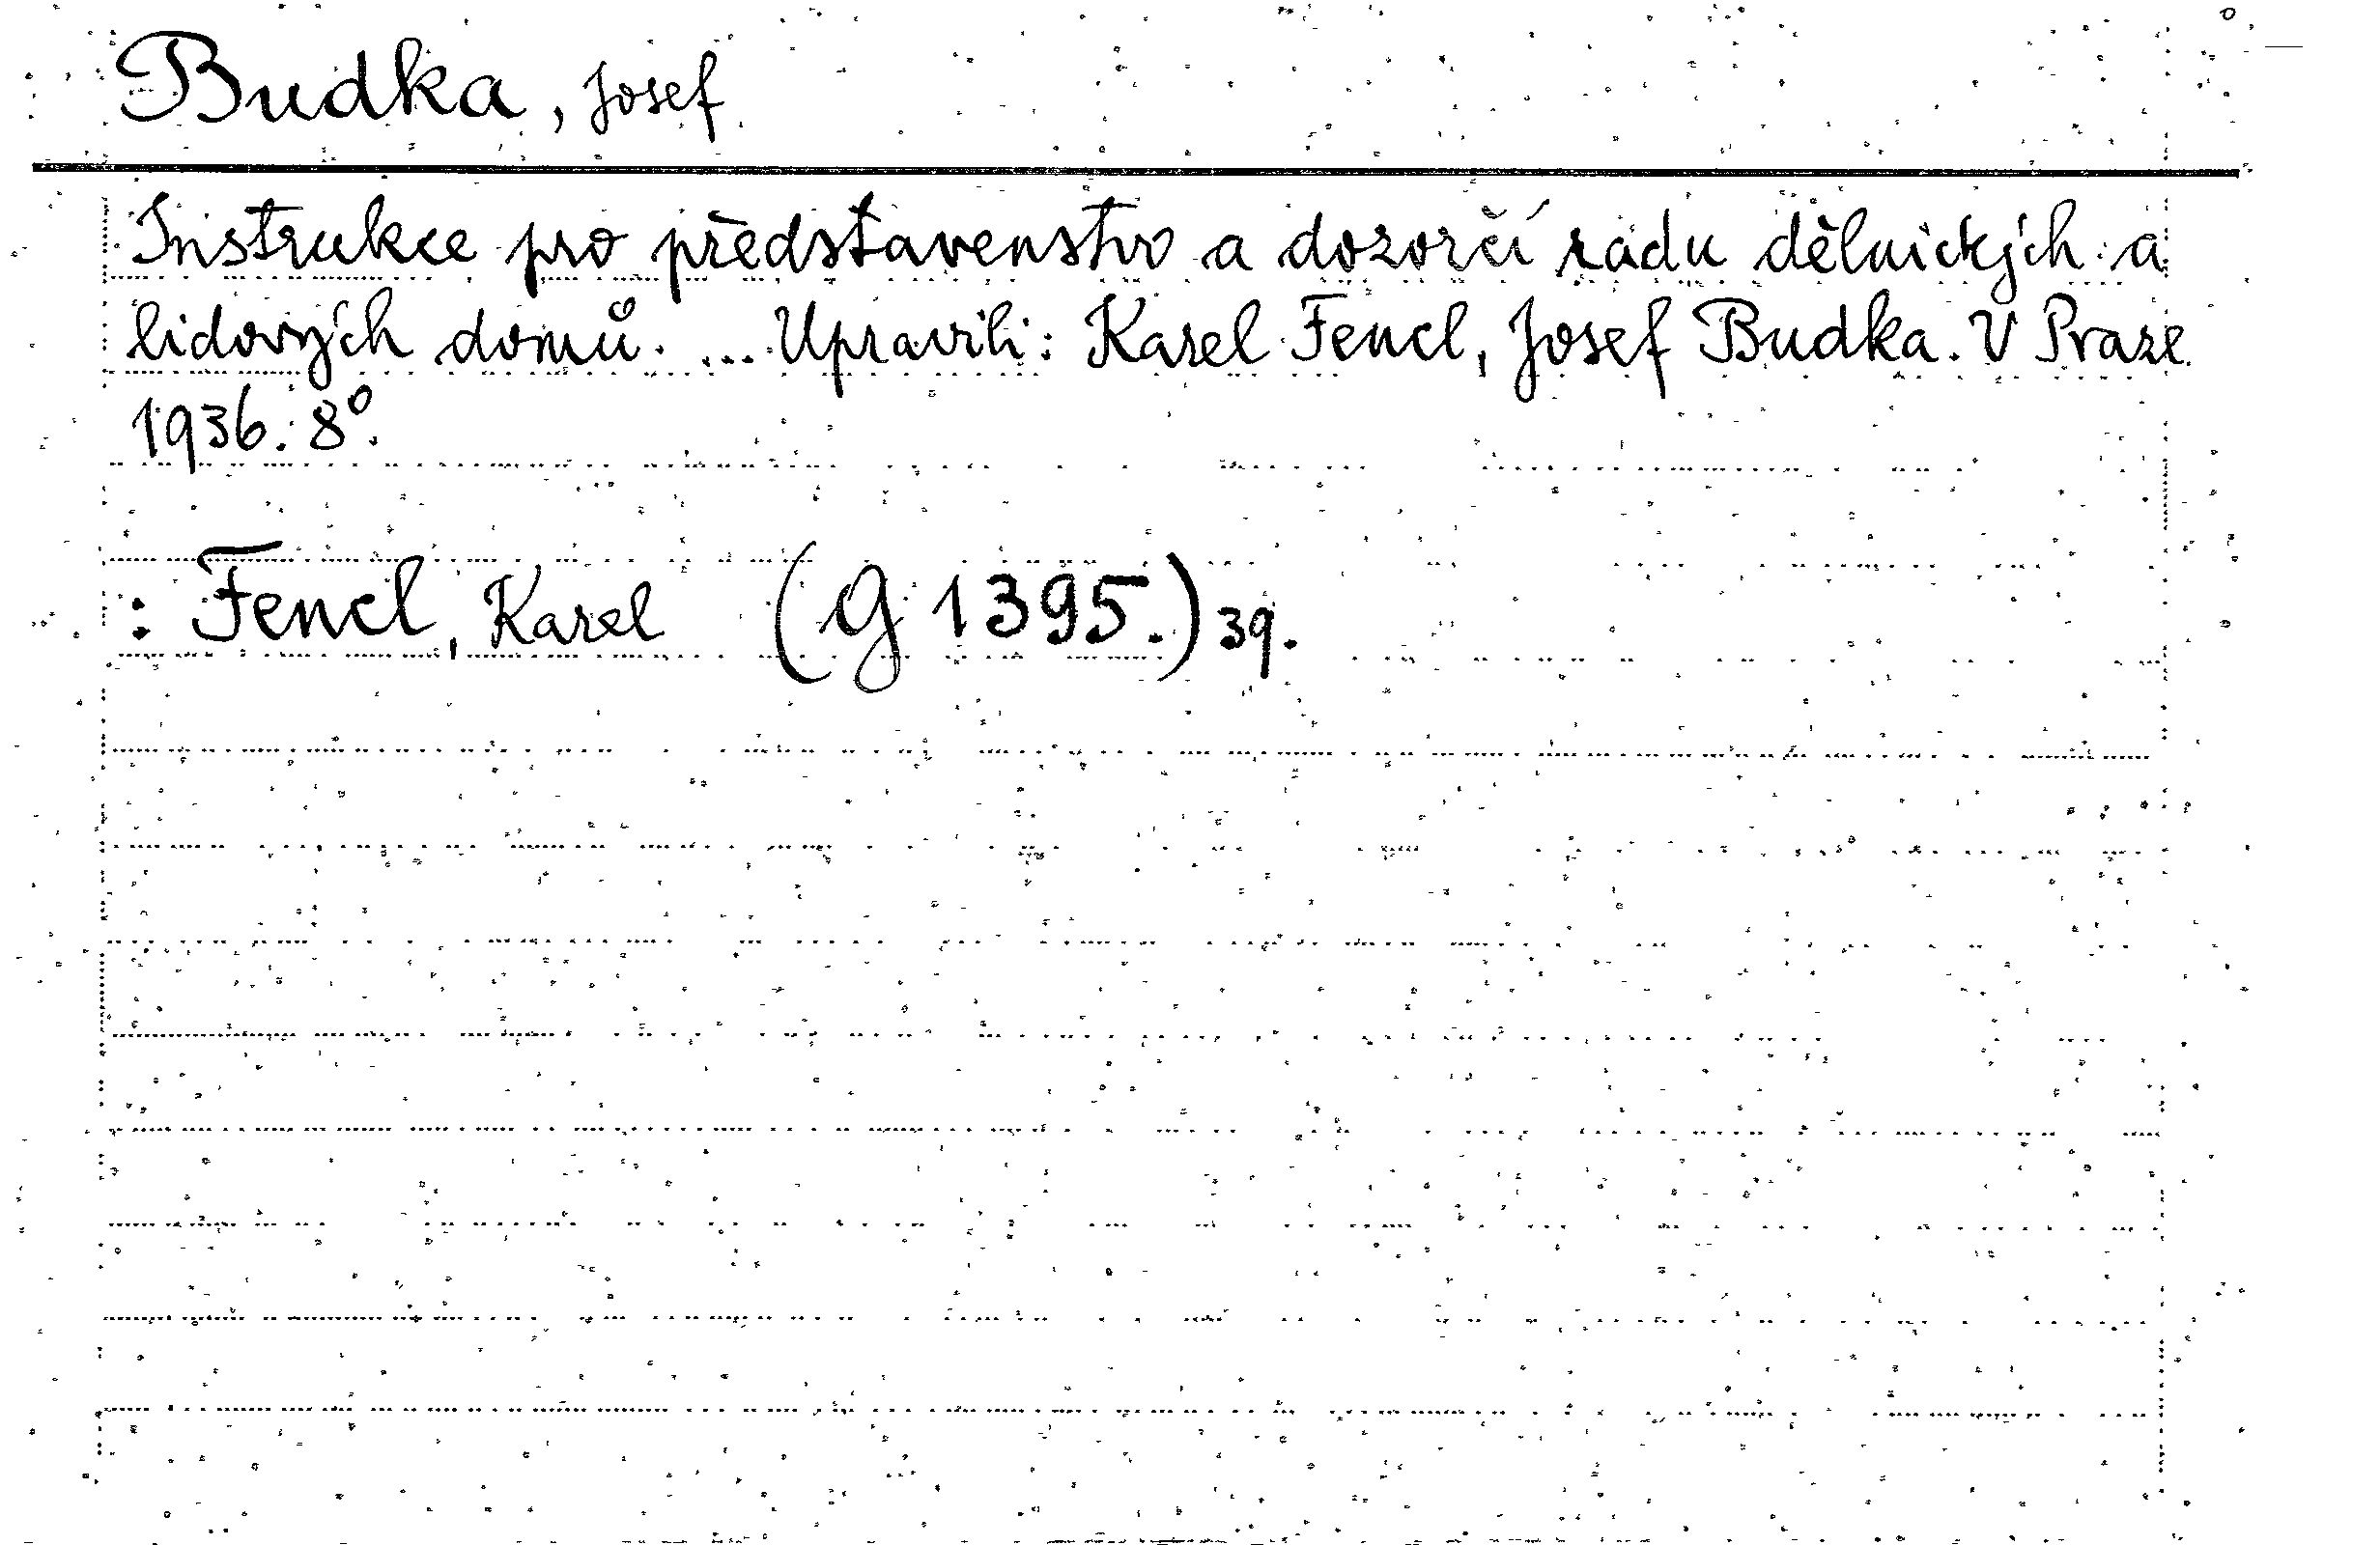 Budka, Josef
Instrukce pro představenstvo a dozorčí radu dělnických a
lidových domů. ... Upravili: Karel Fencl, Josef Budka. V Praze
1936. 8°.
: Fencl, Karel (G 1395.) 39.